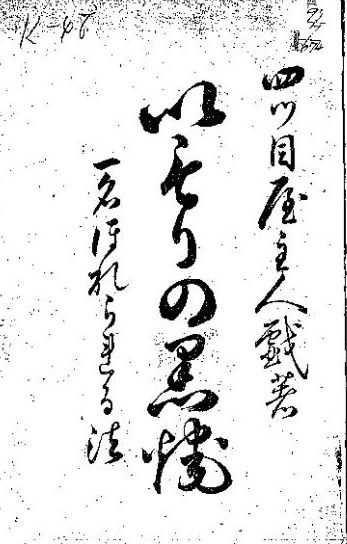 四ツ目屋主人戯著
いもりの黒焼
一名ほれられる法
K-48